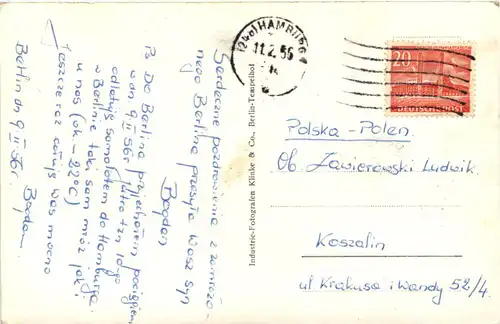 Serdeczne pozdrowienia z zmrożo-
nego Berlina przesyła Wasz syn
Bogdan
Ps Do Berlina przyjechałem pociągiem
w dn 9 II 56r jutro tzn 10-go
odlatuję samolotem do Hamburga.
w Berlinie taki sam mróz jak i
u nas (ok -22°C)
Jeszcze raz całuję was mocno
Bogdan
Berlin dn 9 II 56r.
Industrie-Fotografen Klinke & Co., Berlin-Tempelhof
HAMBURG
11.2.56
20
DEUTSCHE POST
Polska-Polen
Ob. Zawierowski Ludwik
Koszalin
ul Krakusa i Wandy 52/4.